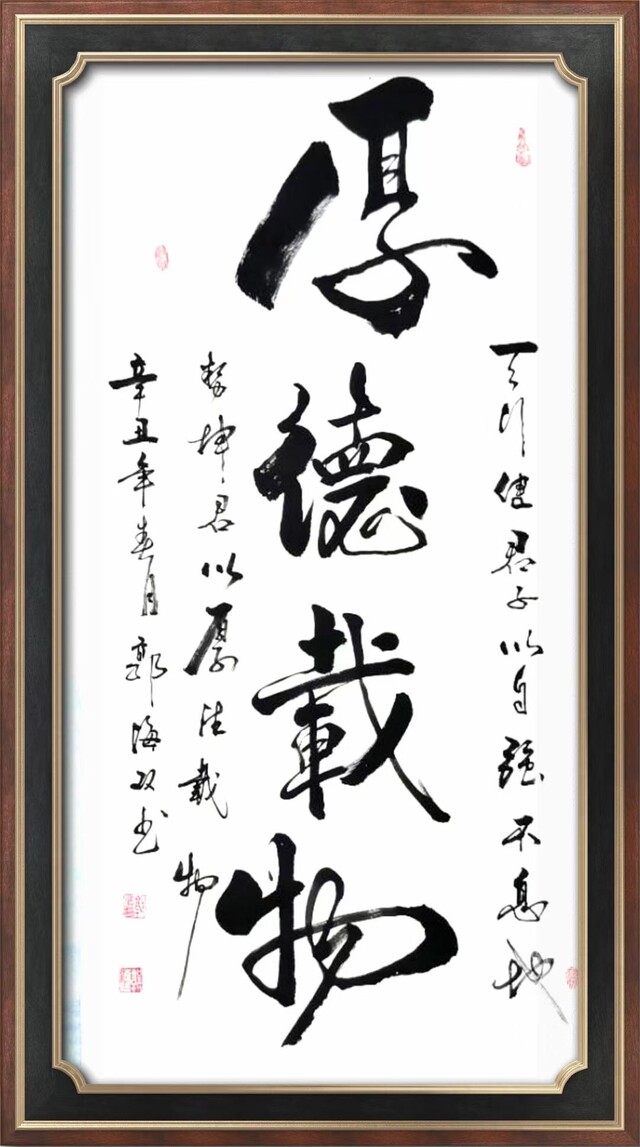 天行健君子以自强不息地
厚德載物
势坤君以厚德載物
辛丑年春月郭海双书